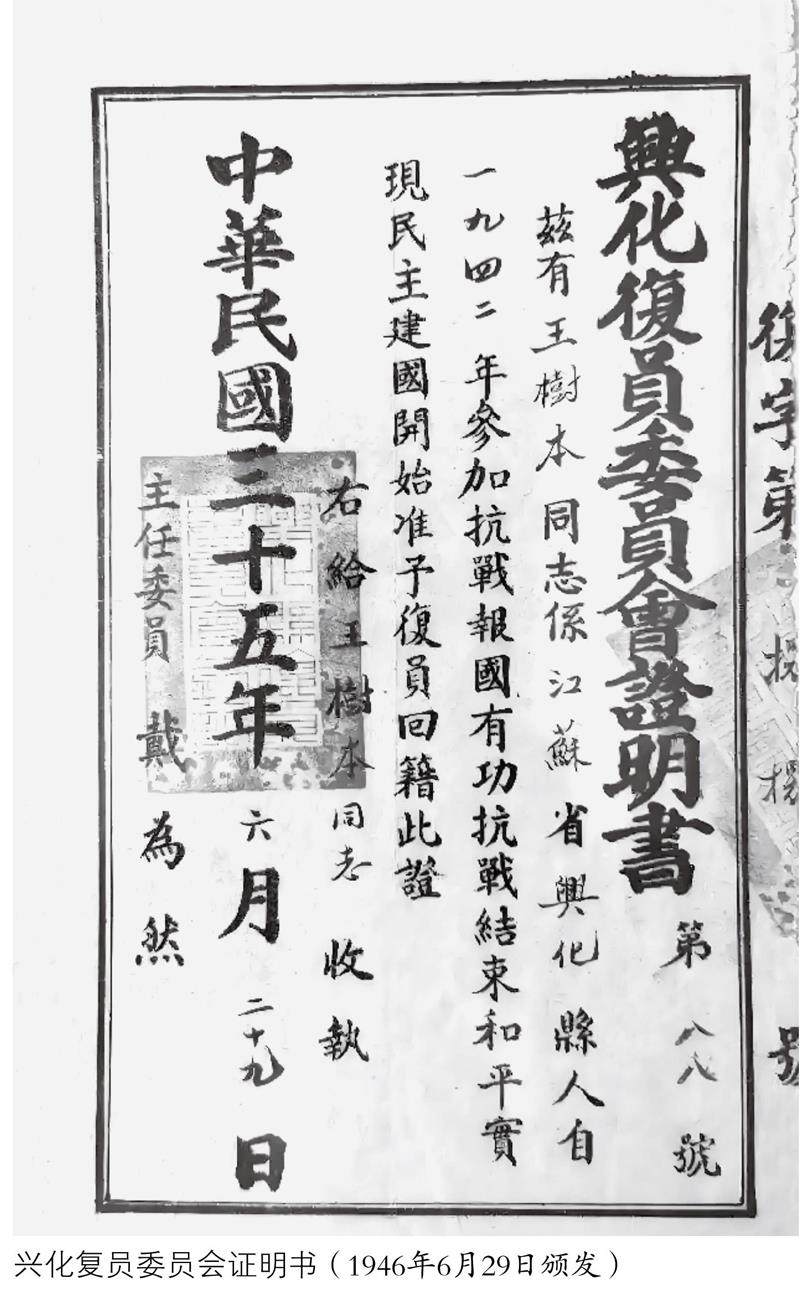 復字第
號
興化復員委員會證明書
第八八號
茲有王樹本同志係江蘇省興化縣人自
一九四二年參加抗戰報國有功抗戰結束和平實
現民主建國開始准予復員回籍此證
右給王樹本同志收執
中華民國三十五年六月二十九日
主任委員戴為然
兴化复员委员会证明书（1946年6月29日颁发）